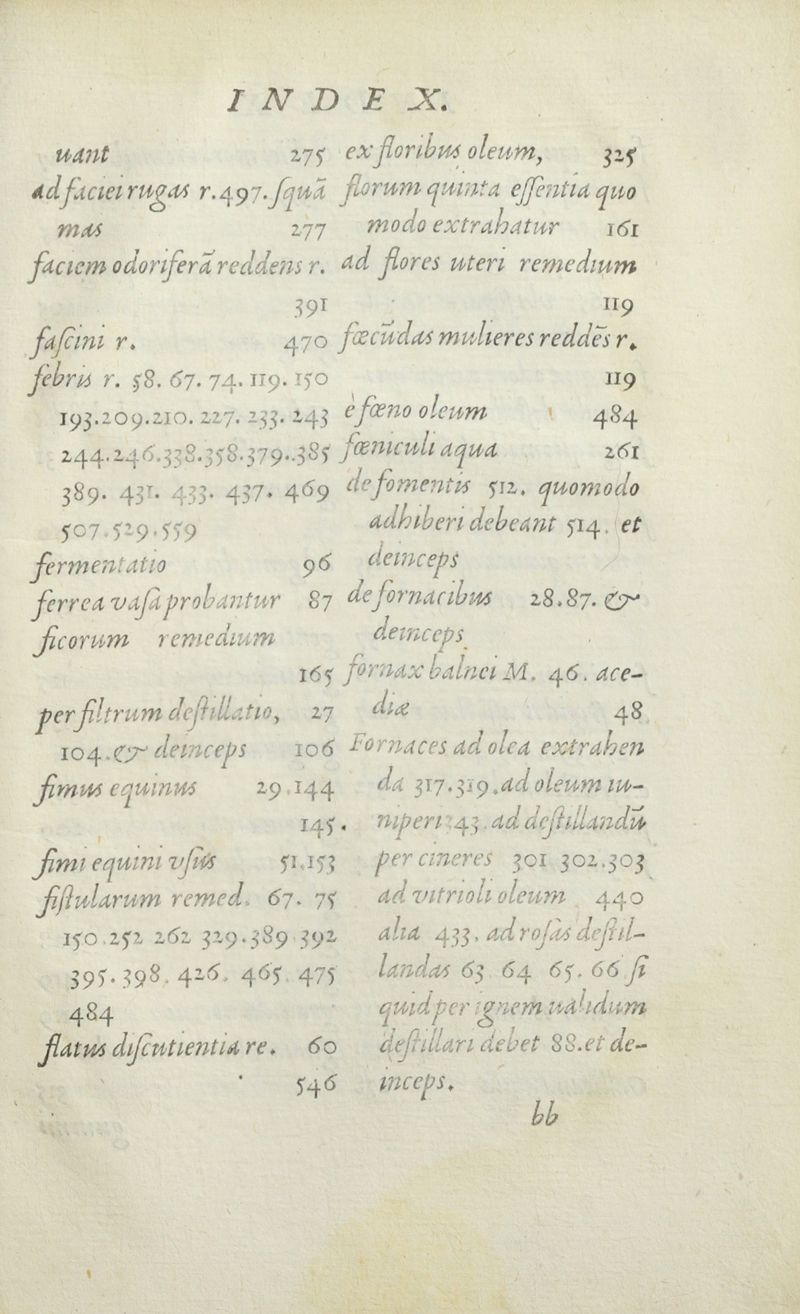 INDEX.
uant 275
ad faciei rugas r. 497. ſquā
mas 277
faciem odoriferā reddens r.
391
faſcini r. 470
febris r. 58. 67. 74. 119. 150
193.209.210. 227. 233. 243
244.246.338.358.379..385
389. 431. 433. 437. 469
507.529.559
fermentatio 96
ferrea vaſa probantur 87
ficorum remedium
165
per filtrum deſtillatio, 27
104. & deinceps 106
fimus equinus 29.144
145.
fimi equini vſus 51.153
fiſtularum remed. 67. 75
150.252 262 329.389 392
395.398. 426. 465. 475
484
flatus diſcutientia re. 60
546
ex floribus oleum, 325
florum quinta eſſentia quo
modo extrahatur 161
ad flores uteri remedium
119
fœcūdas mulieres reddēs r.
119
è fœno oleum 484
fœniculi aqua 261
de fomentis 512. quomodo
adhiberi debeant 514. et
deinceps
de fornacibus 28.87. &
deinceps
fornax balnei M. 46. ace-
diæ 48
Fornaces ad olea extrahen
da 317.319.ad oleum iu-
niperi 43. ad deſtillandū
per cineres 301 302.303
ad vitrioli oleum 440
alia 433. ad roſas deſtil-
landas 63 64 65. 66 ſi
quid per ignem ualidum
deſtillari debet 88.et de-
inceps.
bb